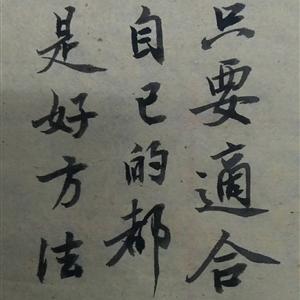 只要適合
自己的都
是好方法